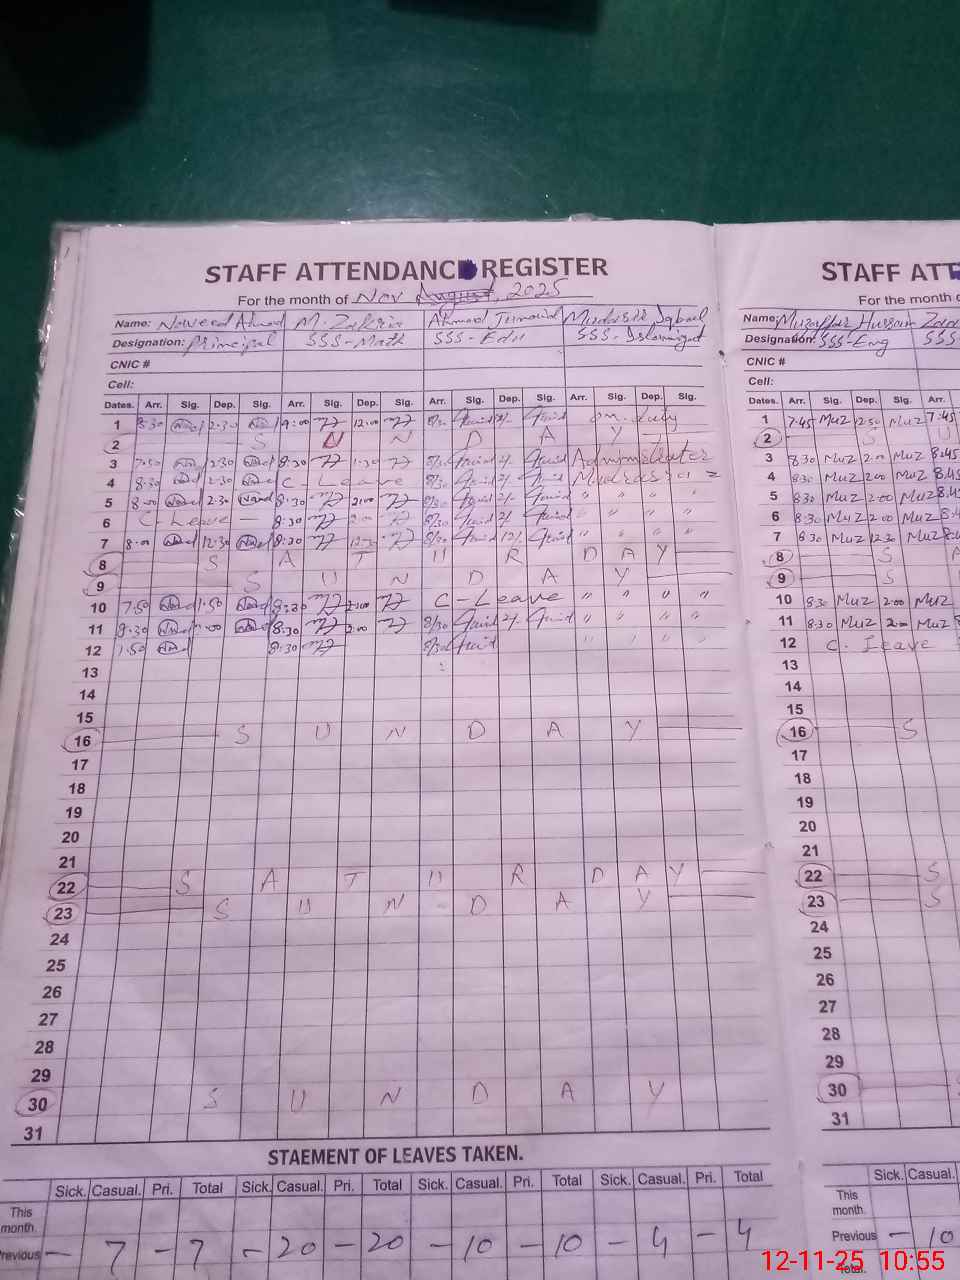 STAFF ATTENDANC REGISTER
For the month of Nov August, 2025
Name: Naveed Ahmad M. Zakria Ahmad Junaid Mudasir Iqbal
Designation: Principal SSS-Math SSS-Edu SSS-Islamiyat
CNIC #
Cell:
Dates. Arr. Sig. Dep. Sig. Arr. Sig. Dep. Sig. Arr. Sig. Dep. Sig. Arr. Sig. Dep. Sig.
1 8:30 2:30 9:00 12:00 on duty
2 S U N D A Y
3 7:50 2:30 8:30 1:30 8/30 Administrator
4 8:30 2:30 C-Leave 8/30
5 8:00 2:30 8:30 2:00 8/30 " " "
6 C-Leave 8:30 2:00 8/30 " " " "
7 8:00 12:30 8:30 12:30 8/30 " " " "
8 S A T U R D A Y
9 S U N D A Y
10 7:50 1:50 8:30 2:00 C-Leave " " " "
11 8:30 2:00 8/30 " " " "
12 7:50 8:30 8/30 " " " "
13
14
15
16 S U N D A Y
17
18
19
20
21
22 S A T U R D A Y
23 S U N D A Y
24
25
26
27
28
29
30 S U N D A Y
31
STAEMENT OF LEAVES TAKEN.
Sick. Casual. Pri. Total Sick. Casual. Pri. Total Sick. Casual. Pri. Total Sick. Casual. Pri. Total
This month.
Previous - 7 - 7 - 20 - 20 - 10 - 10 - 4 - 4
STAFF ATT
For the month o
Name: Muzaffar Hussain
Designation: SSS-Eng SSS-
CNIC #
Cell:
Dates. Arr. Sig. Dep. Sig. Arr.
1 7:45 Muz 12:50 Muz 7:45
2 S U
3 8:30 Muz 2:00 Muz 8:45
4 8:30 Muz 2:00 Muz
5 8:30 Muz 2:00 Muz
6 8:30 Muz 2:00 Muz
7 8:30 Muz 12:30 Muz
8 S
9 S
10 8:30 Muz 2:00 Muz
11 8:30 Muz 2:00 Muz
12 C. Leave
13
14
15
16 S
17
18
19
20
21
22 S
23 S
24
25
26
27
28
29
30
31
Sick. Casual.
This month.
Previous - 10
Total.
12-11-25 10:55